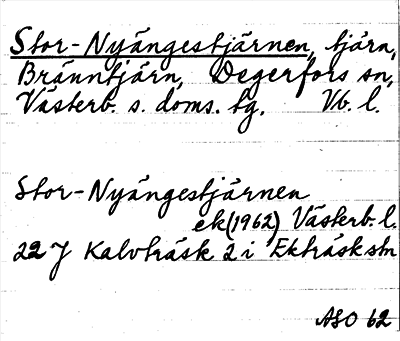 Stor-Nyängestjärnen, tjärn,
Bränntjärn, Degerfors sn,
Västerb. s. doms. tg. Vb. l.
Stor-Nyängestjärnen
ek (1962) Västerb. l.
22 J Kalvträsk 2 i Ekträsk stn
ASO 62